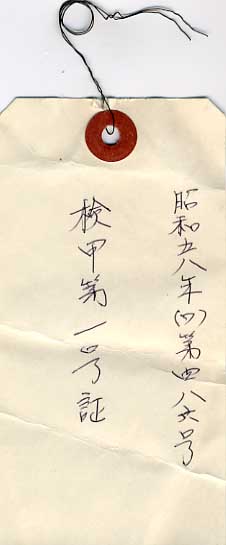 昭和五八年(ワ)第四八六号
検甲第一号証